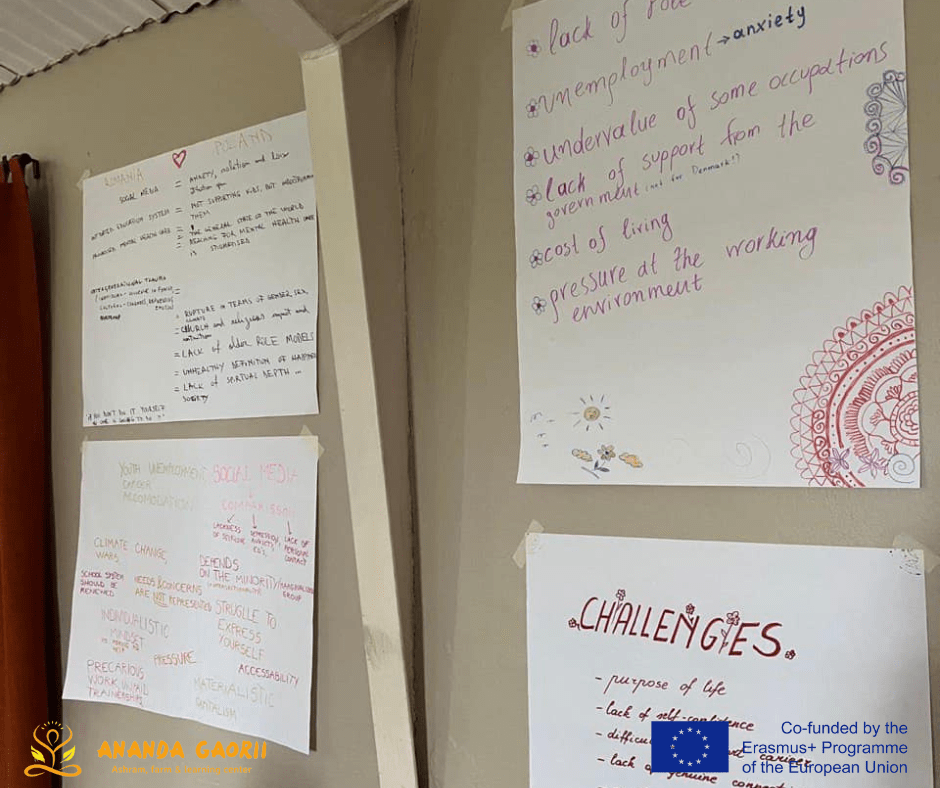 ROMANIA POLAND
SOCIAL MEDIA = ANXIETY, isolation and
EDUCATION SYSTEM = NOT SUPPORTING KIDS, BUT
THEM
MENTAL HEALTH CARE = THE GENERAL STATE OF THE WORLD
= REACHING FOR MENTAL HEALTH CARE
IS STIGMATISED
INTERGENERATIONAL TRAUMA
= RUPTURE IN TERMS OF GENDER, SEX,
CLIMATE
= CHURCH and religious impact and
= LACK OF older ROLE MODELS
= UNHEALTHY DEFINITION OF
= LACK OF SPIRITUAL DEPTH ...
SOCIETY
IF YOU DON'T DO IT YOURSELF
NO ONE IS GOING TO DO IT
YOUTH UNEMPLOYMENT
CAREER
ACCOMODATION
SOCIAL MEDIA
COMPARISON
LACK OF
PERSONAL
CONTACT
CLIMATE CHANGE
WARS
SCHOOL SYSTEM
SHOULD BE
REVIEWED
NEEDS & CONCERNS
ARE NOT REPRESENTED
DEPENDS
ON THE MINORITY/MARGINALISED
GROUP
STRUGLLE TO
EXPRESS
YOURSELF
INDIVIDUALISTIC
MINDSET
PRESSURE
ACCESSABILITY
PRECARIOUS
WORK, UNPAID
TRAINEESHIPS
MATERIALISTIC
CAPITALISM
lack of role
unemployment → anxiety
undervalue of some occupations
lack of support from the
government (not for Denmark!)
cost of living
pressure at the working
environment
CHALLENGES
- purpose of life
- lack of self-confidence
- career
- lack of genuine
ANANDA GAORII
Ashram, farm & learning center
Co-funded by the
Erasmus+ Programme
of the European Union